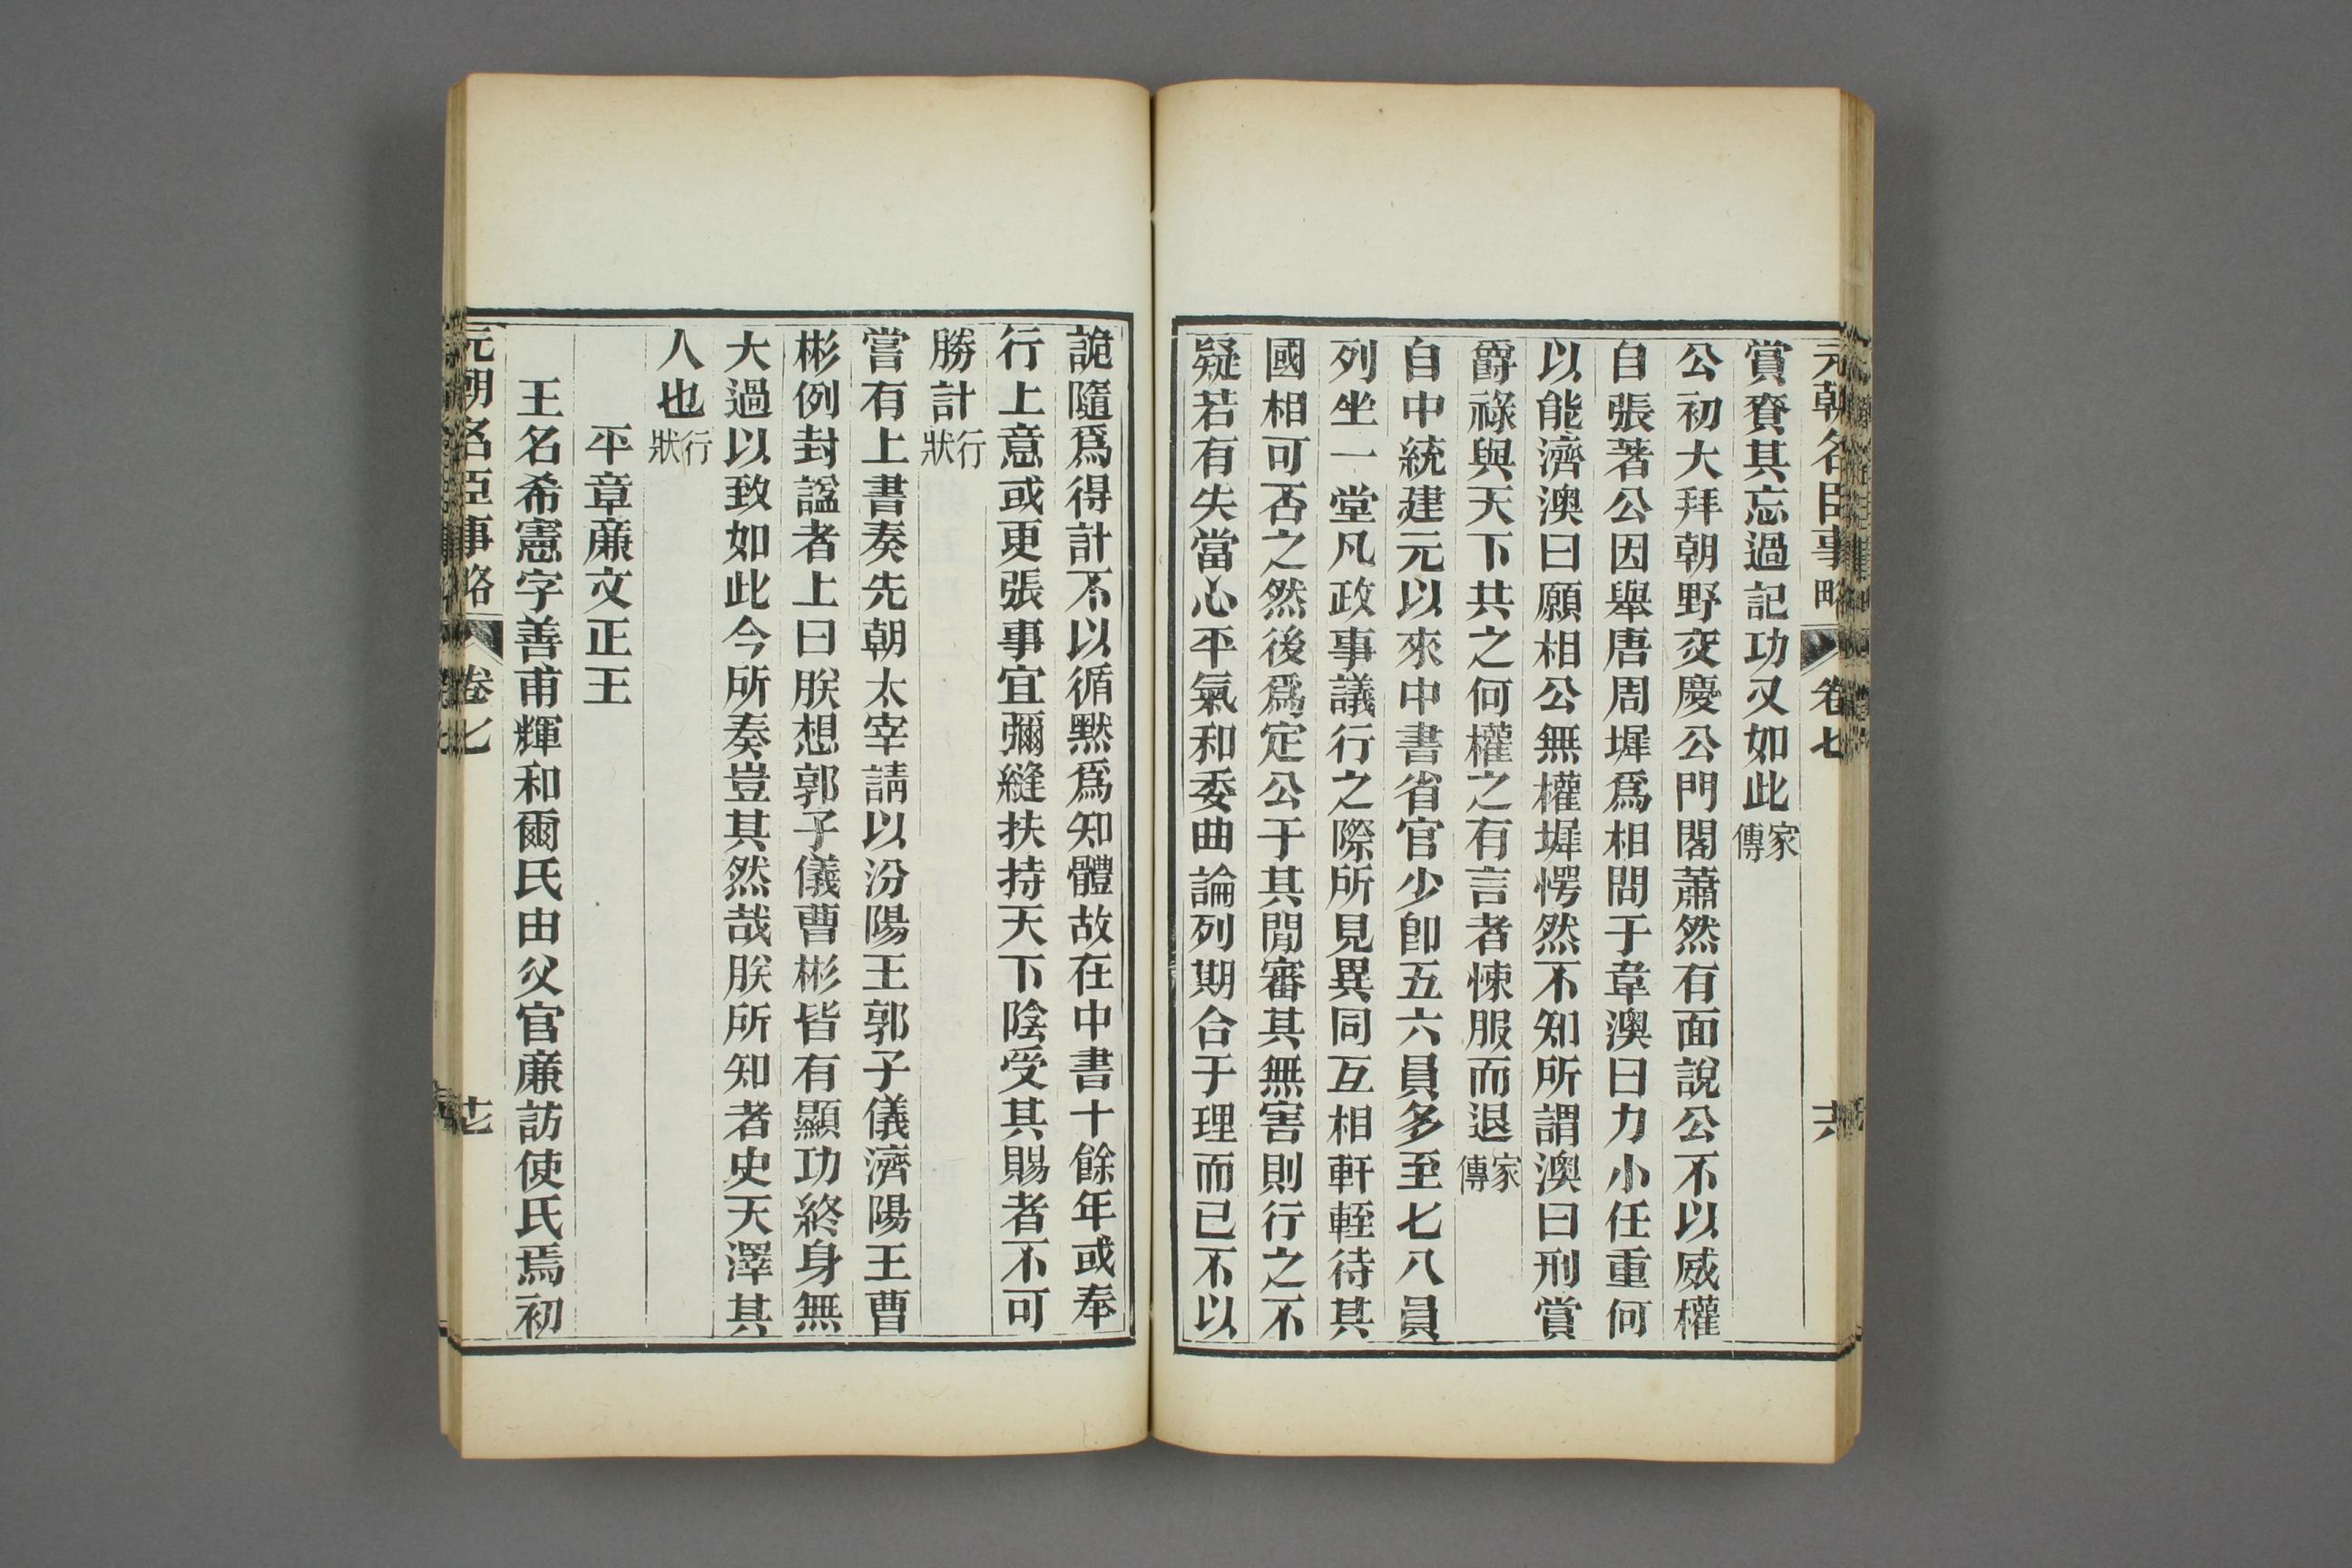 元朝名臣事略 卷七 六
賞賚其忘過記功又如此家傳
公初大拜朝野交慶公門閣蕭然有面說公不以威權
自張著公因舉唐周墀爲相問于韋澳曰力小任重何
以能濟澳曰願相公無權墀愕然不知所謂澳曰刑賞
爵祿與天下共之何權之有言者悚服而退家傳
自中統建元以來中書省官少卽五六員多至七八員
列坐一堂凡政事議行之際所見異同互相軒輊待其
國相可否之然後爲定公于其閒審其無害則行之不
疑若有失當心平氣和委曲論列期合于理而已不以
詭隨爲得計不以循默爲知體故在中書十餘年或奉
行上意或更張事宜彌縫扶持天下陰受其賜者不可
勝計行狀
嘗有上書奏先朝太宰請以汾陽王郭子儀濟陽王曹
彬例封諡者上曰朕想郭子儀曹彬皆有顯功終身無
大過以致如此今所奏豈其然哉朕所知者史天澤其
人也行狀
平章廉文正王
王名希憲字善甫輝和爾氏由父官廉訪使氏焉初
元朝名臣事略 卷七